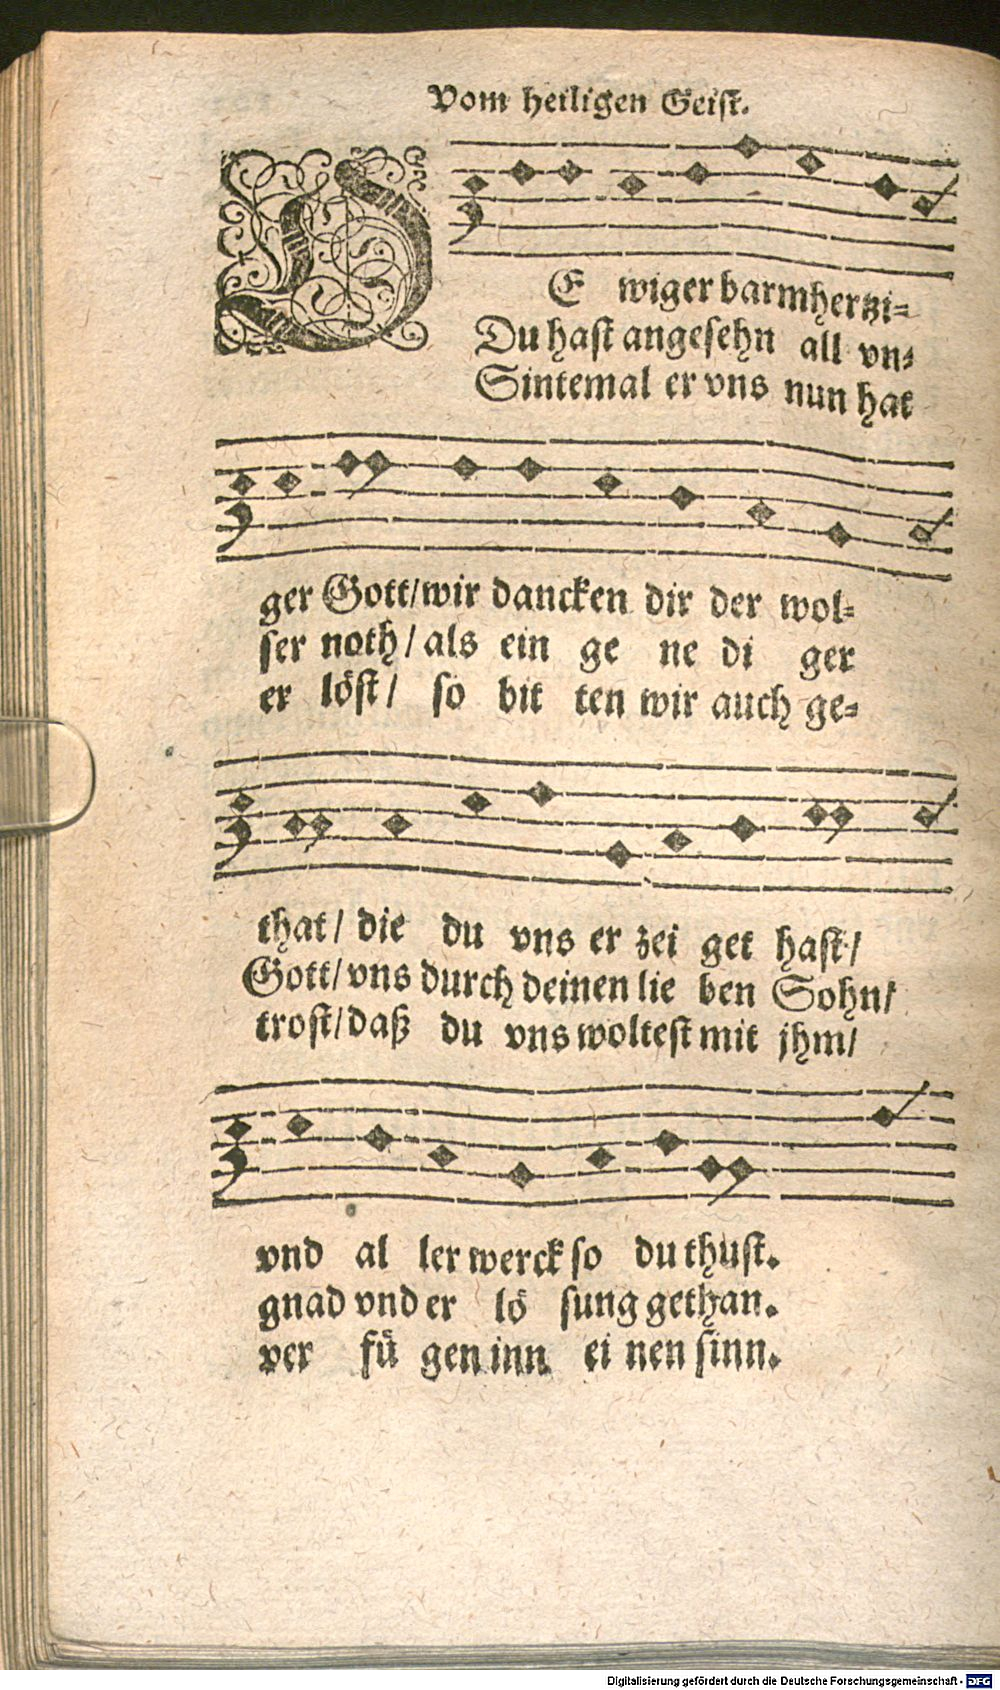 Vom heiligen Geist.
O E wiger barmhertzi=
Du hast angesehn all vn=
Sintemal er vns nun hat
ger Gott/wir dancken dir der wol=
ser noth/ als ein ge ne di ger
er löst/ so bit ten wir auch ge=
that/ die du vns er zei get hast/
Gott/vns durch deinen lie ben Sohn/
trost/daß du vns woltest mit jhm/
vnd al ler werck so du thust.
gnad vnd er lö sung gethan.
ver fü gen inn ei nen sinn.
Digitalisierung gefördert durch die Deutsche Forschungsgemeinschaft - DFG